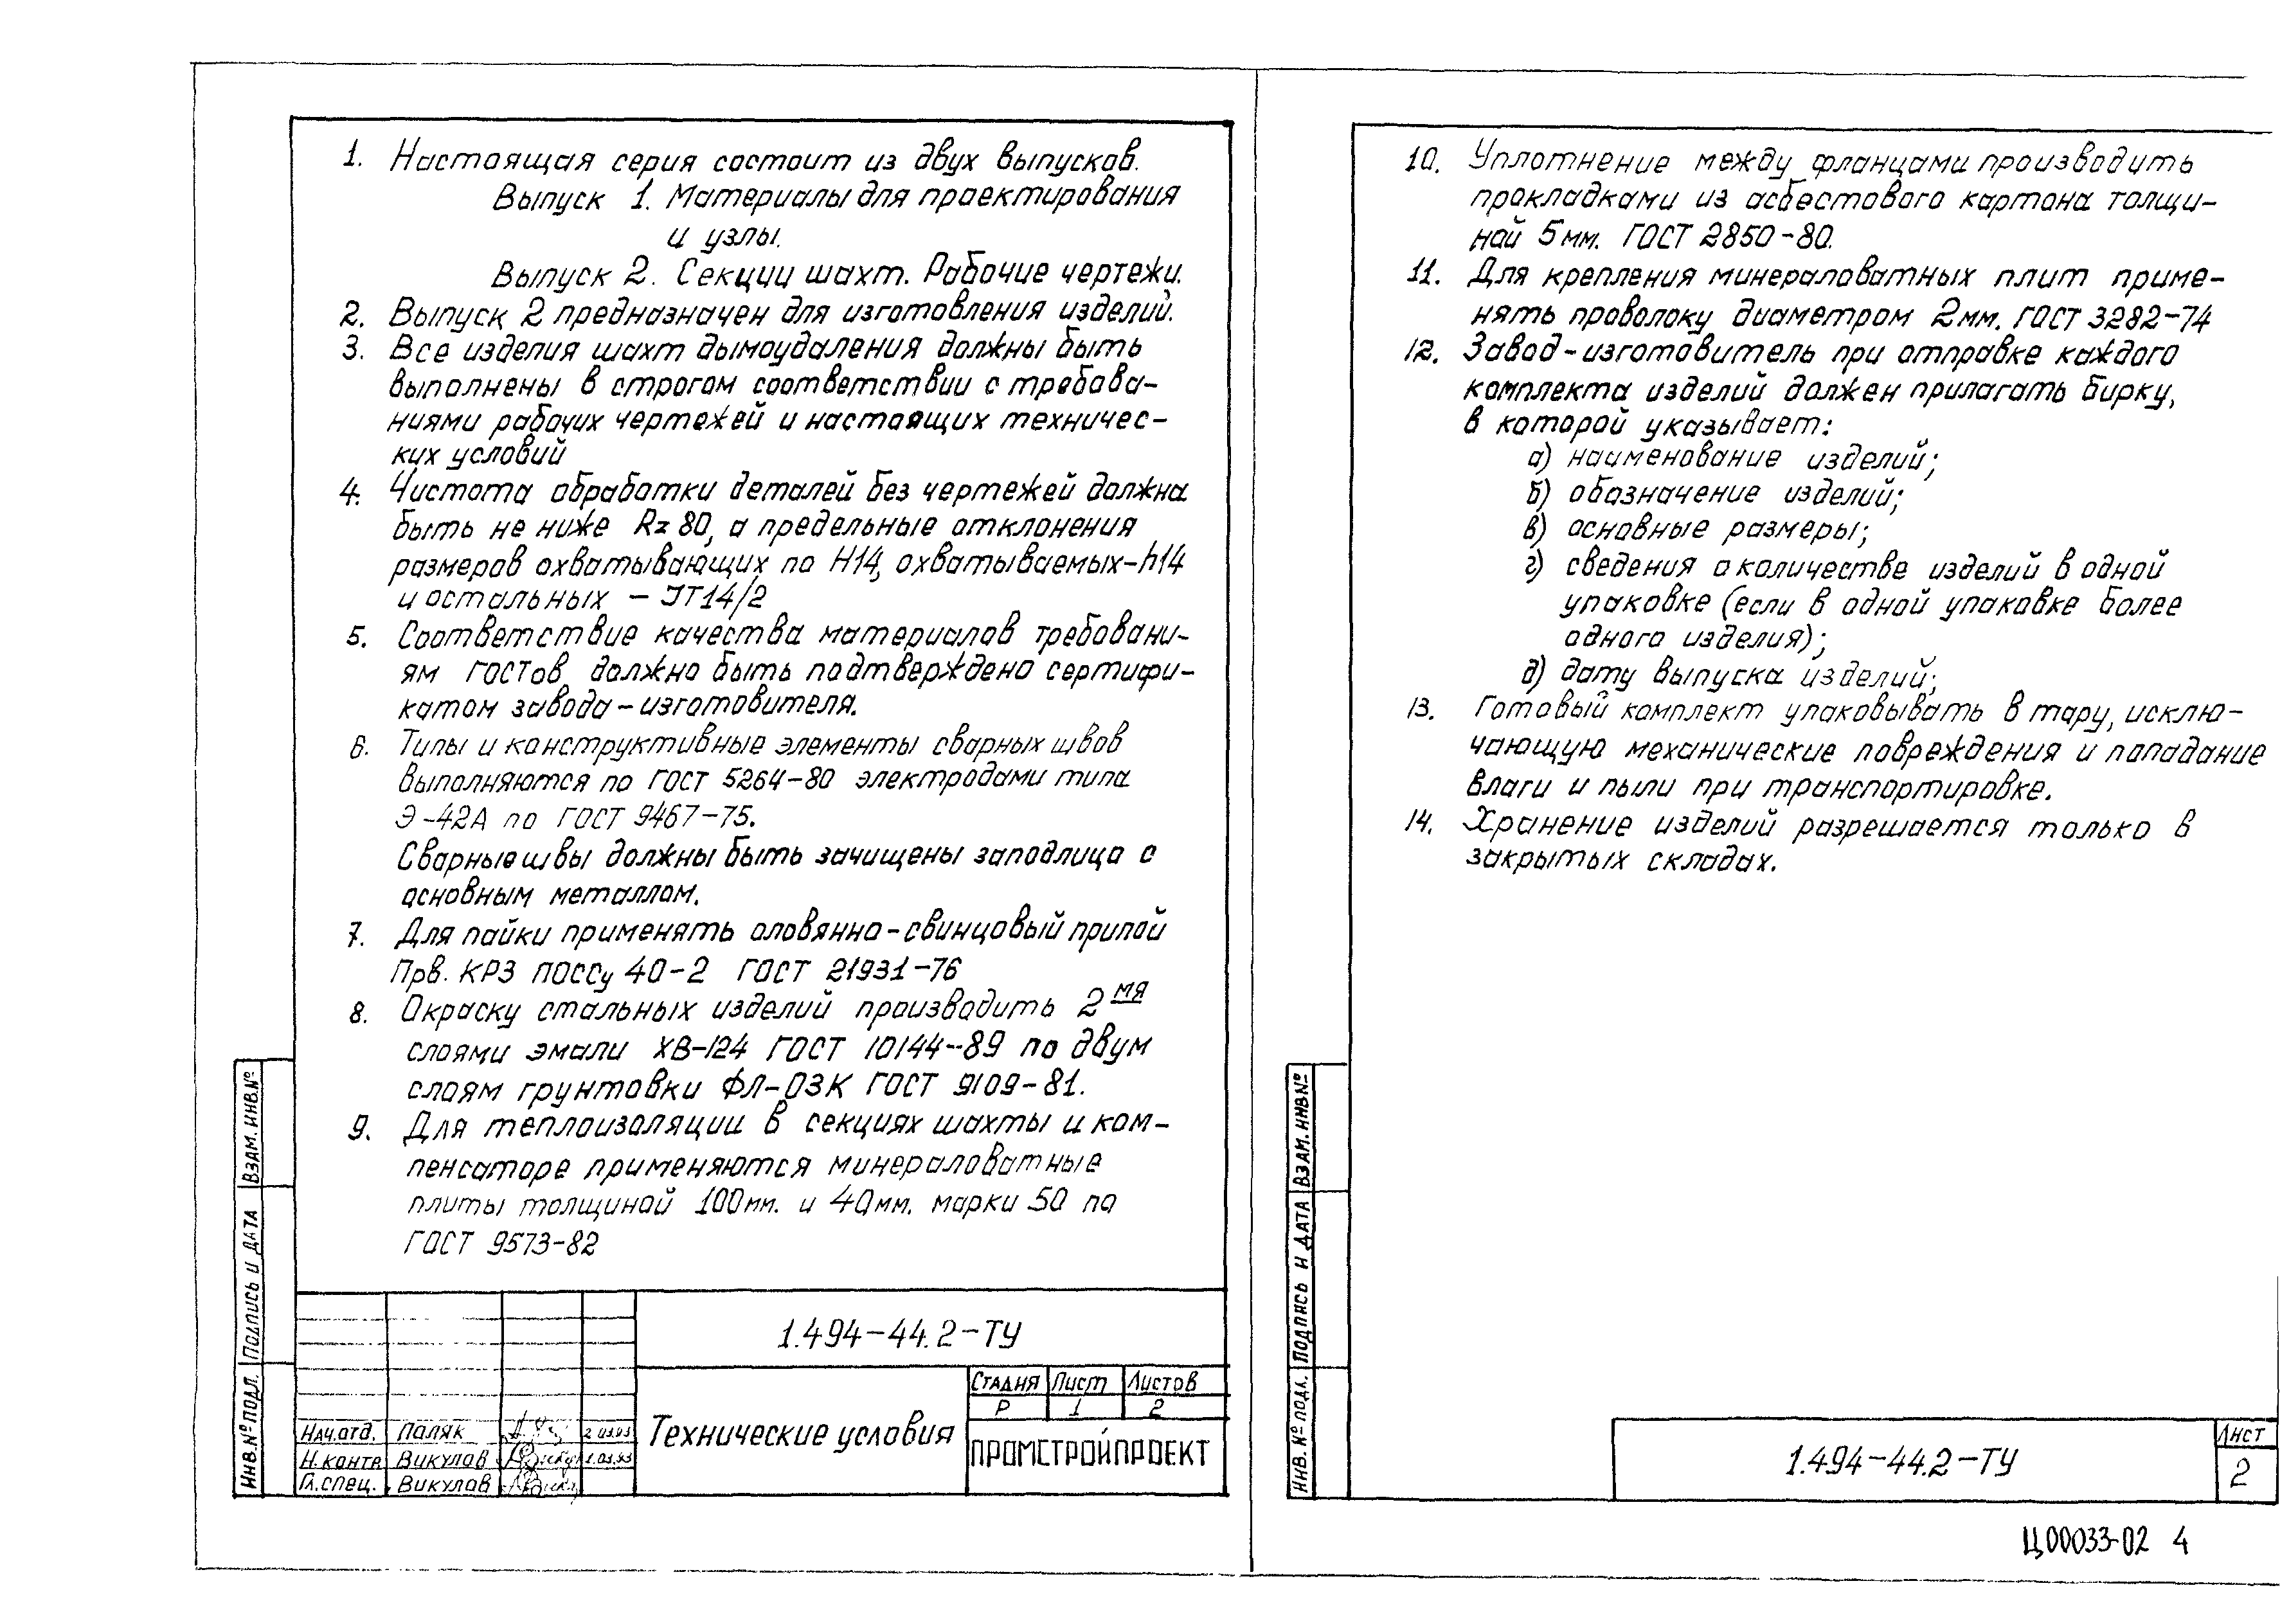 1. Настоящая серия состоит из двух выпусков.
Выпуск 1. Материалы для проектирования
и узлы.
Выпуск 2. Секции шахт. Рабочие чертежи.
2. Выпуск 2 предназначен для изготовления изделий.
3. Все изделия шахт дымоудаления должны быть
выполнены в строгом соответствии с требова-
ниями рабочих чертежей и настоящих техничес-
ких условий
4. Чистота обработки деталей без чертежей должна
быть не ниже Rz 80, а предельные отклонения
размеров охватывающих по H14, охватываемых-h14
и остальных - JT14/2
5. Соответствие качества материалов требовани-
ям ГОСТов должно быть подтверждено сертифи-
катом завода-изготовителя.
6. Типы и конструктивные элементы сварных швов
выполняются по ГОСТ 5264-80 электродами типа
Э-42А по ГОСТ 9467-75.
Сварные швы должны быть зачищены заподлицо с
основным металлом.
7. Для пайки применять оловянно-свинцовый припой
Прв. КР3 ПОССу 40-2 ГОСТ 21931-76
8. Окраску стальных изделий производить 2мя
слоями эмали ХВ-124 ГОСТ 10144-89 по двум
слоям грунтовки ФЛ-03К ГОСТ 9109-81.
9. Для теплоизоляции в секциях шахты и ком-
пенсаторе применяются минераловатные
плиты толщиной 100мм. и 40мм. марки 50 по
ГОСТ 9573-82
ИНВ.№ ПОДЛ. ПОДПИСЬ И ДАТА ВЗАМ.ИНВ.№
1.494-44.2-ТУ
Технические условия
Стадия Лист Листов
Р 1 2
ПРОМСТРОЙПРОЕКТ
Нач.отд. Паляк
Н.контр Викулов
Гл.спец. Викулов
10. Уплотнение между фланцами производить
прокладками из асбестового картона толщи-
ной 5мм. ГОСТ 2850-80.
11. Для крепления минераловатных плит приме-
нять проволоку диаметром 2мм. ГОСТ 3282-74
12. Завод-изготовитель при отправке каждого
комплекта изделий должен прилагать бирку,
в которой указывает:
а) наименование изделий;
б) обозначение изделий;
в) основные размеры;
г) сведения о количестве изделий в одной
упаковке (если в одной упаковке более
одного изделия);
д) дату выпуска изделий;
13. Готовый комплект упаковывать в тару, исклю-
чающую механические повреждения и попадание
влаги и пыли при транспортировке.
14. Хранение изделий разрешается только в
закрытых складах.
ИНВ. № ПОДЛ. ПОДПИСЬ И ДАТА ВЗАМ.ИНВ.№
1.494-44.2-ТУ
Лист
2
Ц00033-02 4